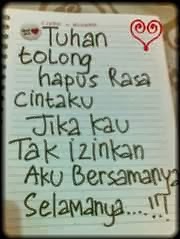 Tuhan
tolong
hapus Rasa
cintaku
Jika kau
Tak izinkan
Aku Bersamanya
Selamanya....!!!